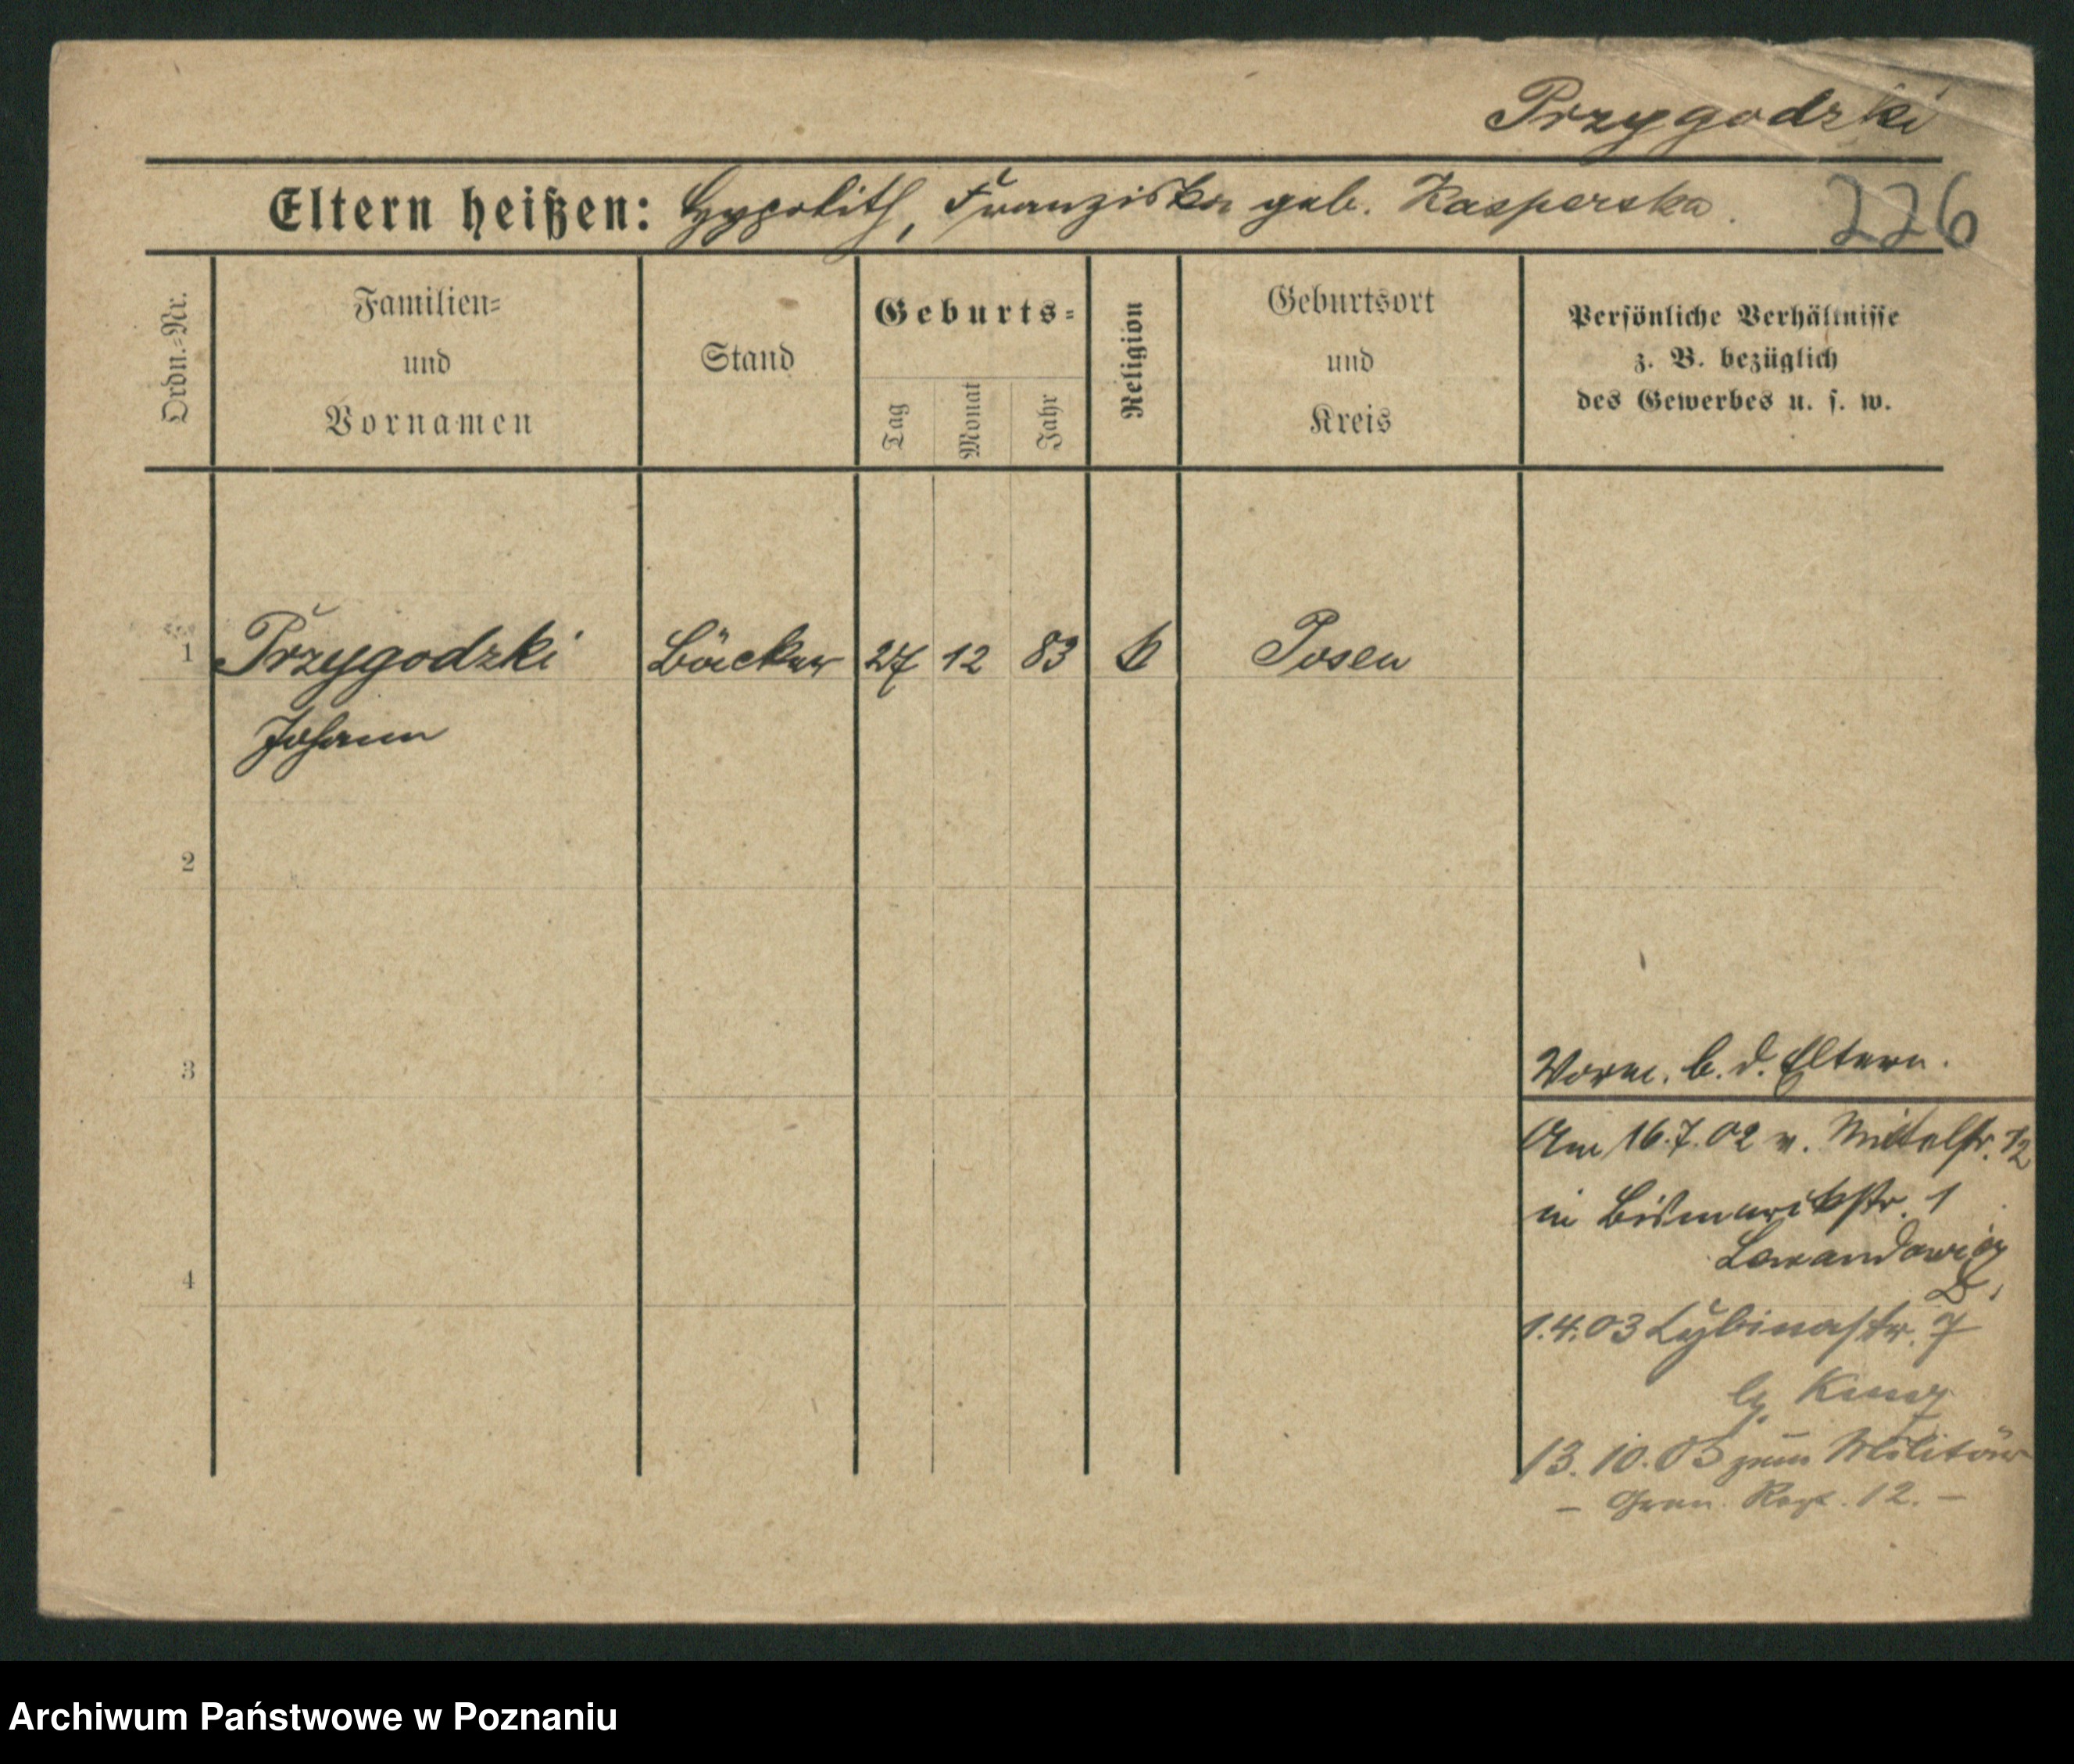 Przygodzki
Eltern heißen: Hypolith, Franziska geb. Kasperska.
226
Ordn.-Nr.
Familien-
und
Vornamen
Stand
Geburts-
Tag
Monat
Jahr
Religion
Geburtsort
und
Kreis
Persönliche Verhältnisse
z. B. bezüglich
des Gewerbes u. s. w.
1 Przygodzki Bäcker 27 12 83 k Posen
Johann
2
3
Vorm. b. d. Eltern.
Am 16.7.02 v. Mittelstr. 12
in Bismarckstr. 1
4
1.4.03 Lybinastr. 7
13.10.03 zum Militär
– Gren. Regt. 12. –
Archiwum Państwowe w Poznaniu